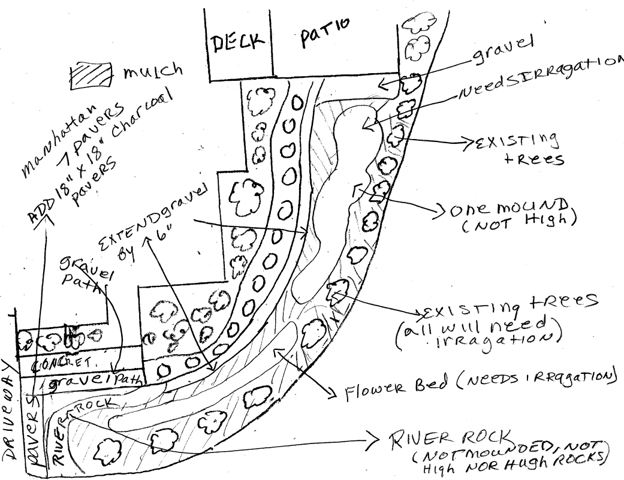 DECK
PATIO
gravel
NEEDS IRRAGATION
mulch
manhattan
7 pavers
ADD 18" X 18" Charcoal
pavers
EXISTING
trees
ONE MOUND
(NOT HIGH)
EXTEND gravel
BY 6"
gravel
Path
EXISTING trees
(all will need
irragation)
CONCRET.
gravel path
FLOWER BED (NEEDS IRRAGATION)
DRIVEWAY
PAVERS
RIVER ROCK
RIVER ROCK
(NOT MOUNDED, NOT
HIGH NOR HUGH ROCKS)